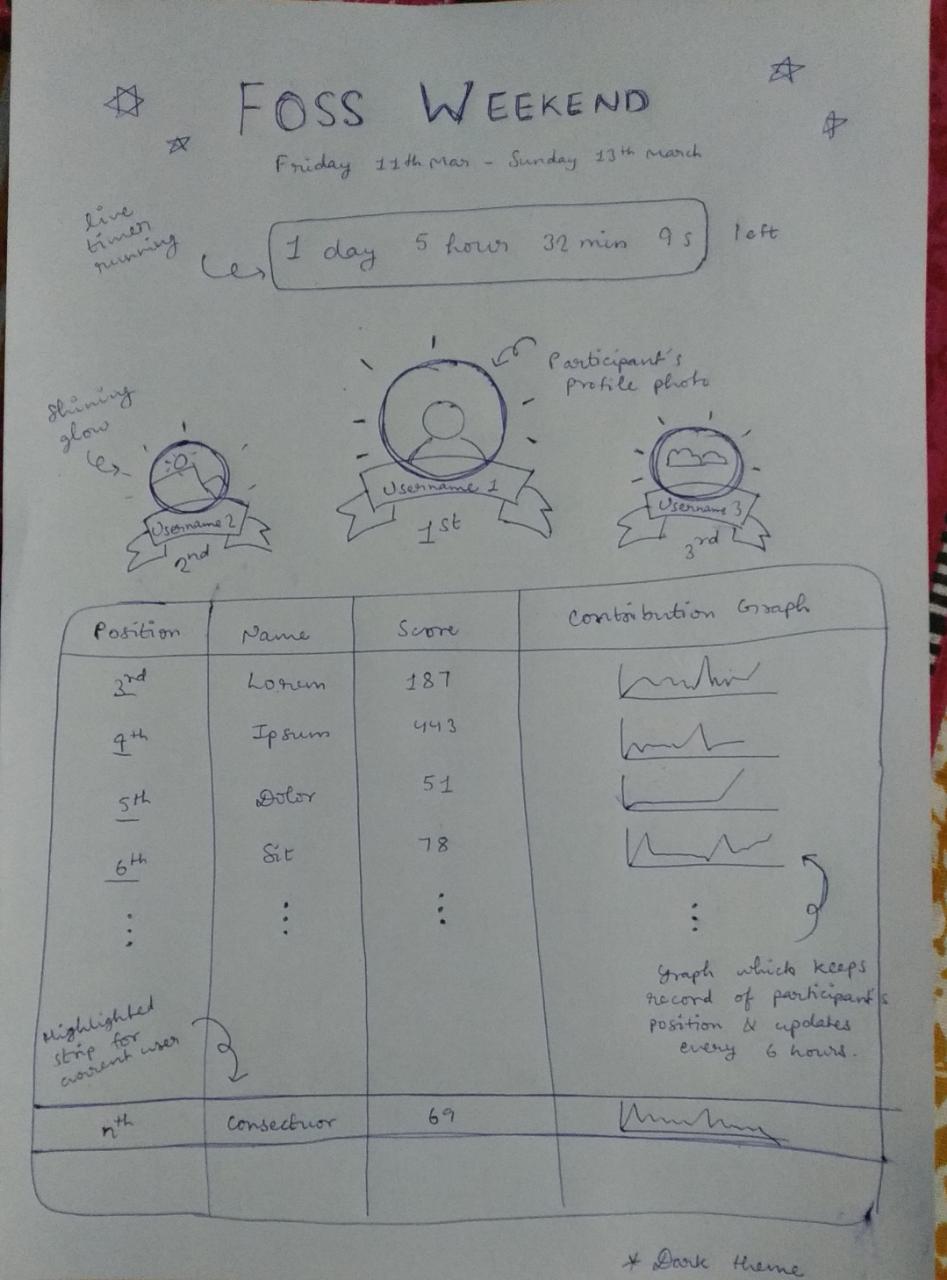 FOSS WEEKEND
Friday 11th Mar - Sunday 13th March
live
timer
running
1 day 5 hour 32 min 9 s left
Participant's
profile photo
Shining
glow
Username 1
1st
Username 2
2nd
Username 3
3rd
Position Name Score Contribution Graph
3rd Lorem 187
4th Ipsum 443
5th Dolor 51
6th Sit 78
Graph which keeps
record of participant's
position & updates
every 6 hours.
Highlighted
strip for
current user
nth Consectuor 69
* Dark theme